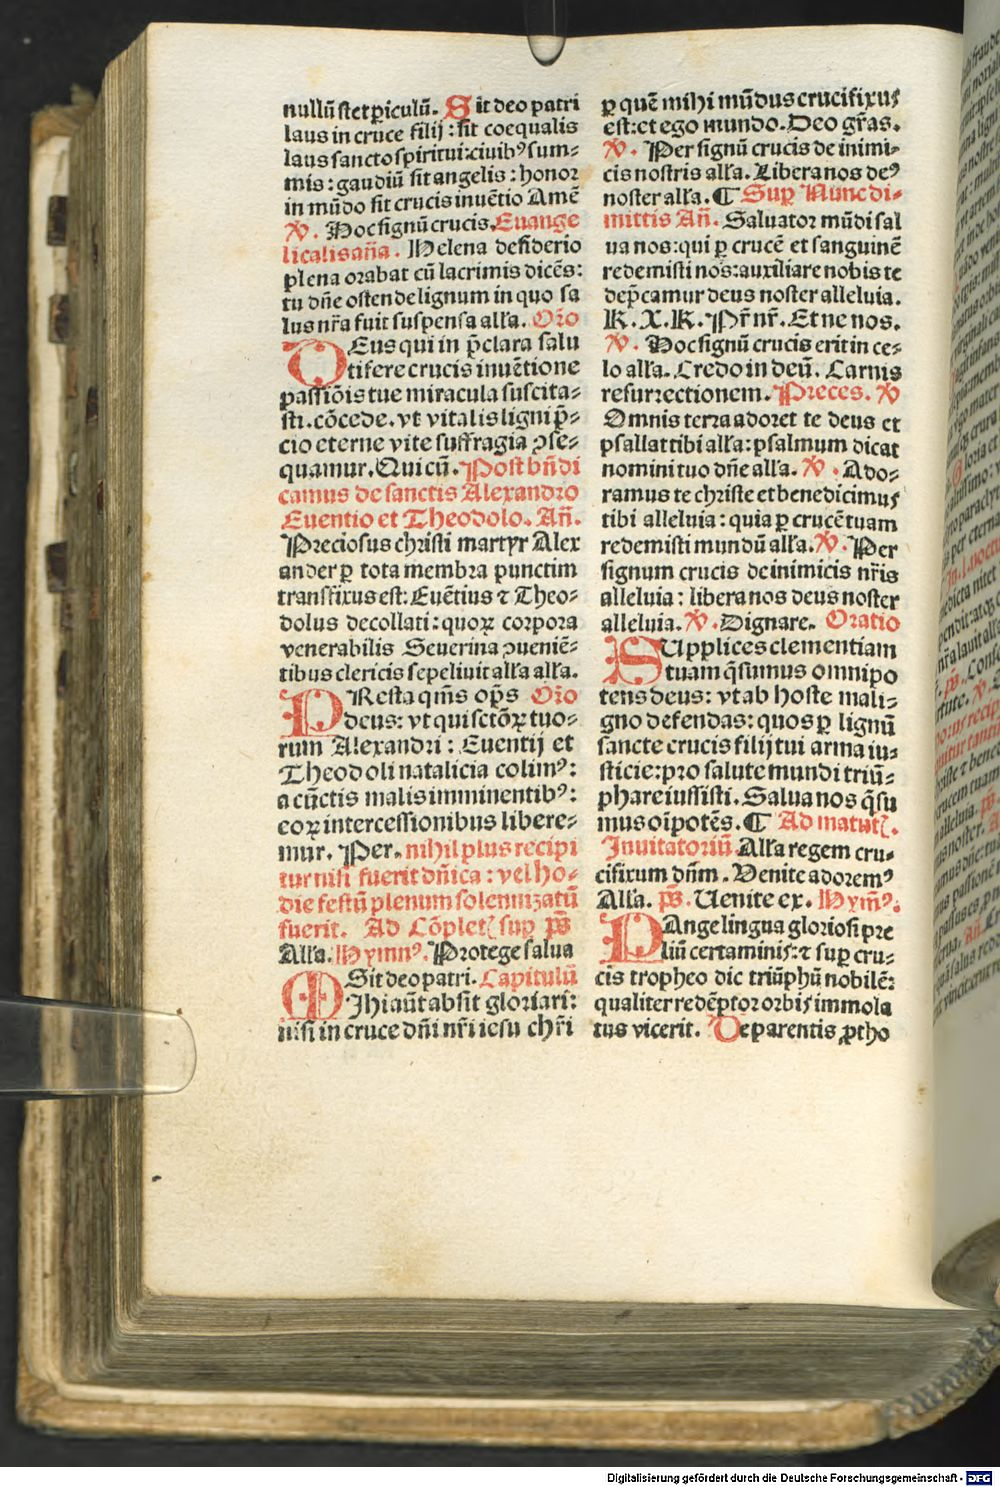 nullū stet ꝑiculū. Sit deo patri
laus in cruce filij : sit coequalis
laus sancto spiritui: ciuibꝰ sum-
mis : gaudiū sit angelis : honor
in mūdo sit crucis inuētio Amē
℣. Hoc signū crucis. Euange
licalis aña. Helena desiderio
plena orabat cū lacrimis dicēs:
tu dñe ostende lignum in quo sa
lus nr̄a fuit suspensa alľa. Oro
DEus qui in p̄clara salu
tifere crucis inuētione
passiōis tue miracula suscita-
sti. cōcede. vt vitalis ligni p̄-
cio eterne vite suffragia ꝯse-
quamur. Qui cū. Post bn̄di
camus de sanctis Alexandro
Euentio et Theodolo. Añ.
Preciosus christi martyr Alex
ander ꝑ tota membra punctim
transfixus est: Euētius ⁊ Theo-
dolus decollati: quoꝝ corpora
venerabilis Seuerina ꝯueniē-
tibus clericis sepeliuit alľa alľa.
PResta qm̄s op̄s Oro
deus: vt qui sctōꝝ tuo-
rum Alexandri : Euentij et
Theodoli natalicia colimꝰ:
a cūctis malis imminentibꝰ:
eoꝝ intercessionibus libere-
mur. Per. nihil plus recipi
tur nisi fuerit dn̄ica : vel ho-
die festū plenum solennizatū
fuerit. Ad Cōpletꝭ sup̄ ps̄
Alľa. Hymnꝰ. Protege salua
Sit deo patri. Capitulū
MIhi aūt absit gloriari:
nisi in cruce dn̄i nr̄i iesu chr̄i
ꝑ quē mihi mūdus crucifixus
est: et ego mundo. Deo gr̄as.
℣. Per signū crucis de inimi-
cis nostris alľa. Libera nos deꝰ
noster alľa. ¶ Sup̄ Nunc di-
mittis Añ. Saluator mūdi sal
ua nos: qui ꝑ crucē et sanguinē
redemisti nos: auxiliare nobis te
dep̄camur deus noster alleluia.
K. X. K. Pr̄ nr̄. Et ne nos.
℣. Hoc signū crucis erit in ce-
lo alľa. Credo in deū. Carnis
resurrectionem. Preces. ℣
Omnis terra adoret te deus et
psallat tibi alľa: psalmum dicat
nomini tuo dn̄e alľa. ℣. Ado-
ramus te christe et benedicimus
tibi alleluia : quia ꝑ crucē tuam
redemisti mundū alľa. ℣. Per
signum crucis de inimicis nr̄is
alleluia : libera nos deus noster
alleluia. ℣. Dignare. Oratio
SUpplices clementiam
tuam q̄sumus omnipo
tens deus: vt ab hoste mali-
gno defendas: quos ꝑ lignū
sancte crucis filij tui arma iu-
sticie: pro salute mundi triū-
phare iussisti. Salua nos q̄su
mus oīpotēs. ¶ Ad matutꝭ.
Inuitatoriū Alľa regem cru-
cifixum dn̄m. Venite adoremꝰ
Alľa. ps̄. Uenite ex. Hymꝰ.
PAnge lingua gloriosi pre
liū certaminis: ⁊ sup̄ cru-
cis tropheo dic triūphū nobilē:
qualiter redēptor orbis immola
tus vicerit. De parentis ꝓtho
Digitalisierung gefördert durch die Deutsche Forschungsgemeinschaft - DFG